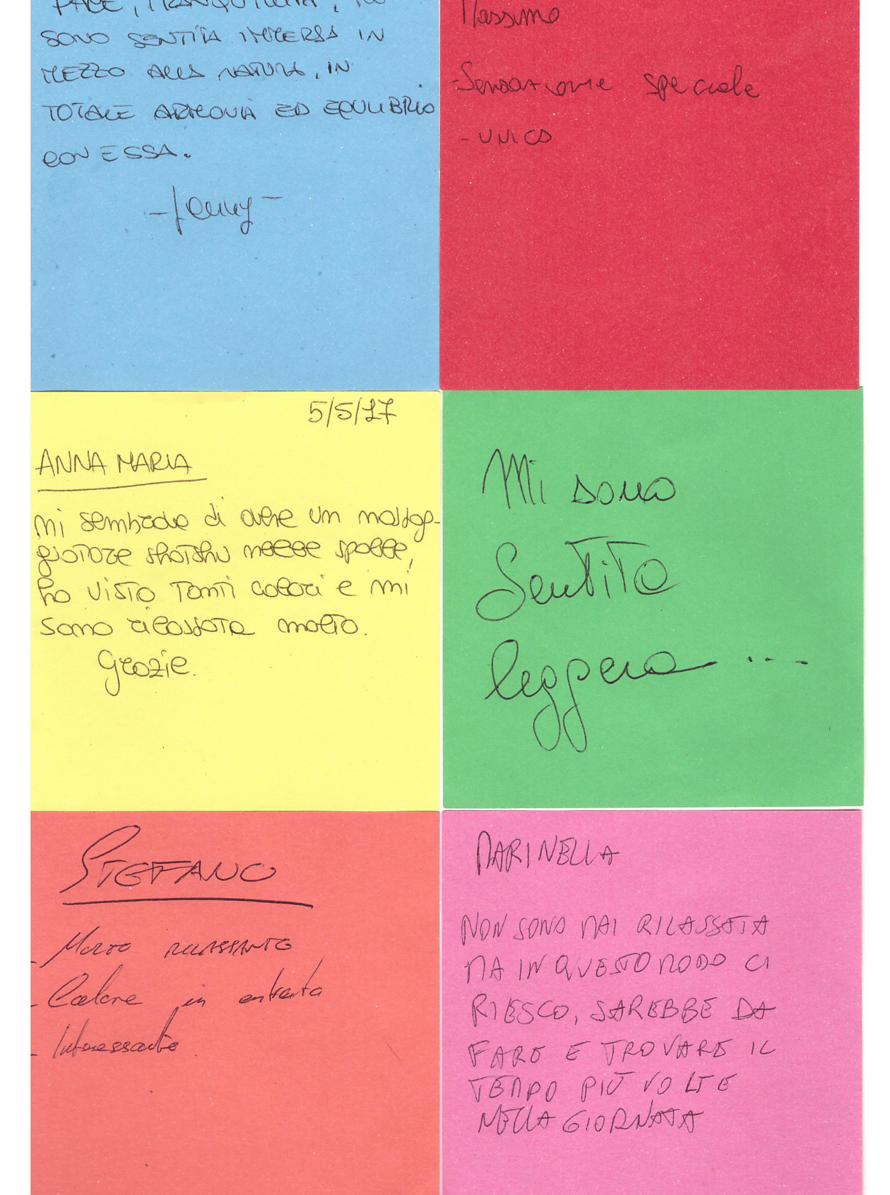 PACE, TRANQUILLITÀ, MI
SONO SENTITA IMMERSA IN
MEZZO ALLA NATURA, IN
TOTALE ARMONIA ED EQUILIBRIO
CON ESSA.
- Jenny -
Massimo
- Sensazione speciale
- UNICO
5/5/17
ANNA MARIA
Mi sembrava di avere un massag-
giatore shatshu nelle spalle,
ho visto tanti colori e mi
sono rilassata molto.
Grazie.
Mi sono
Sentito
leggero ...
STEFANO
- Molto rilassante
- Calore in entrata
- Interessante
MARINELLA
NON SONO MAI RILASSATA
MA IN QUESTO MODO CI
RIESCO, SAREBBE DA
FARE E TROVARE IL
TEMPO PIÙ VOLTE
NELLA GIORNATA